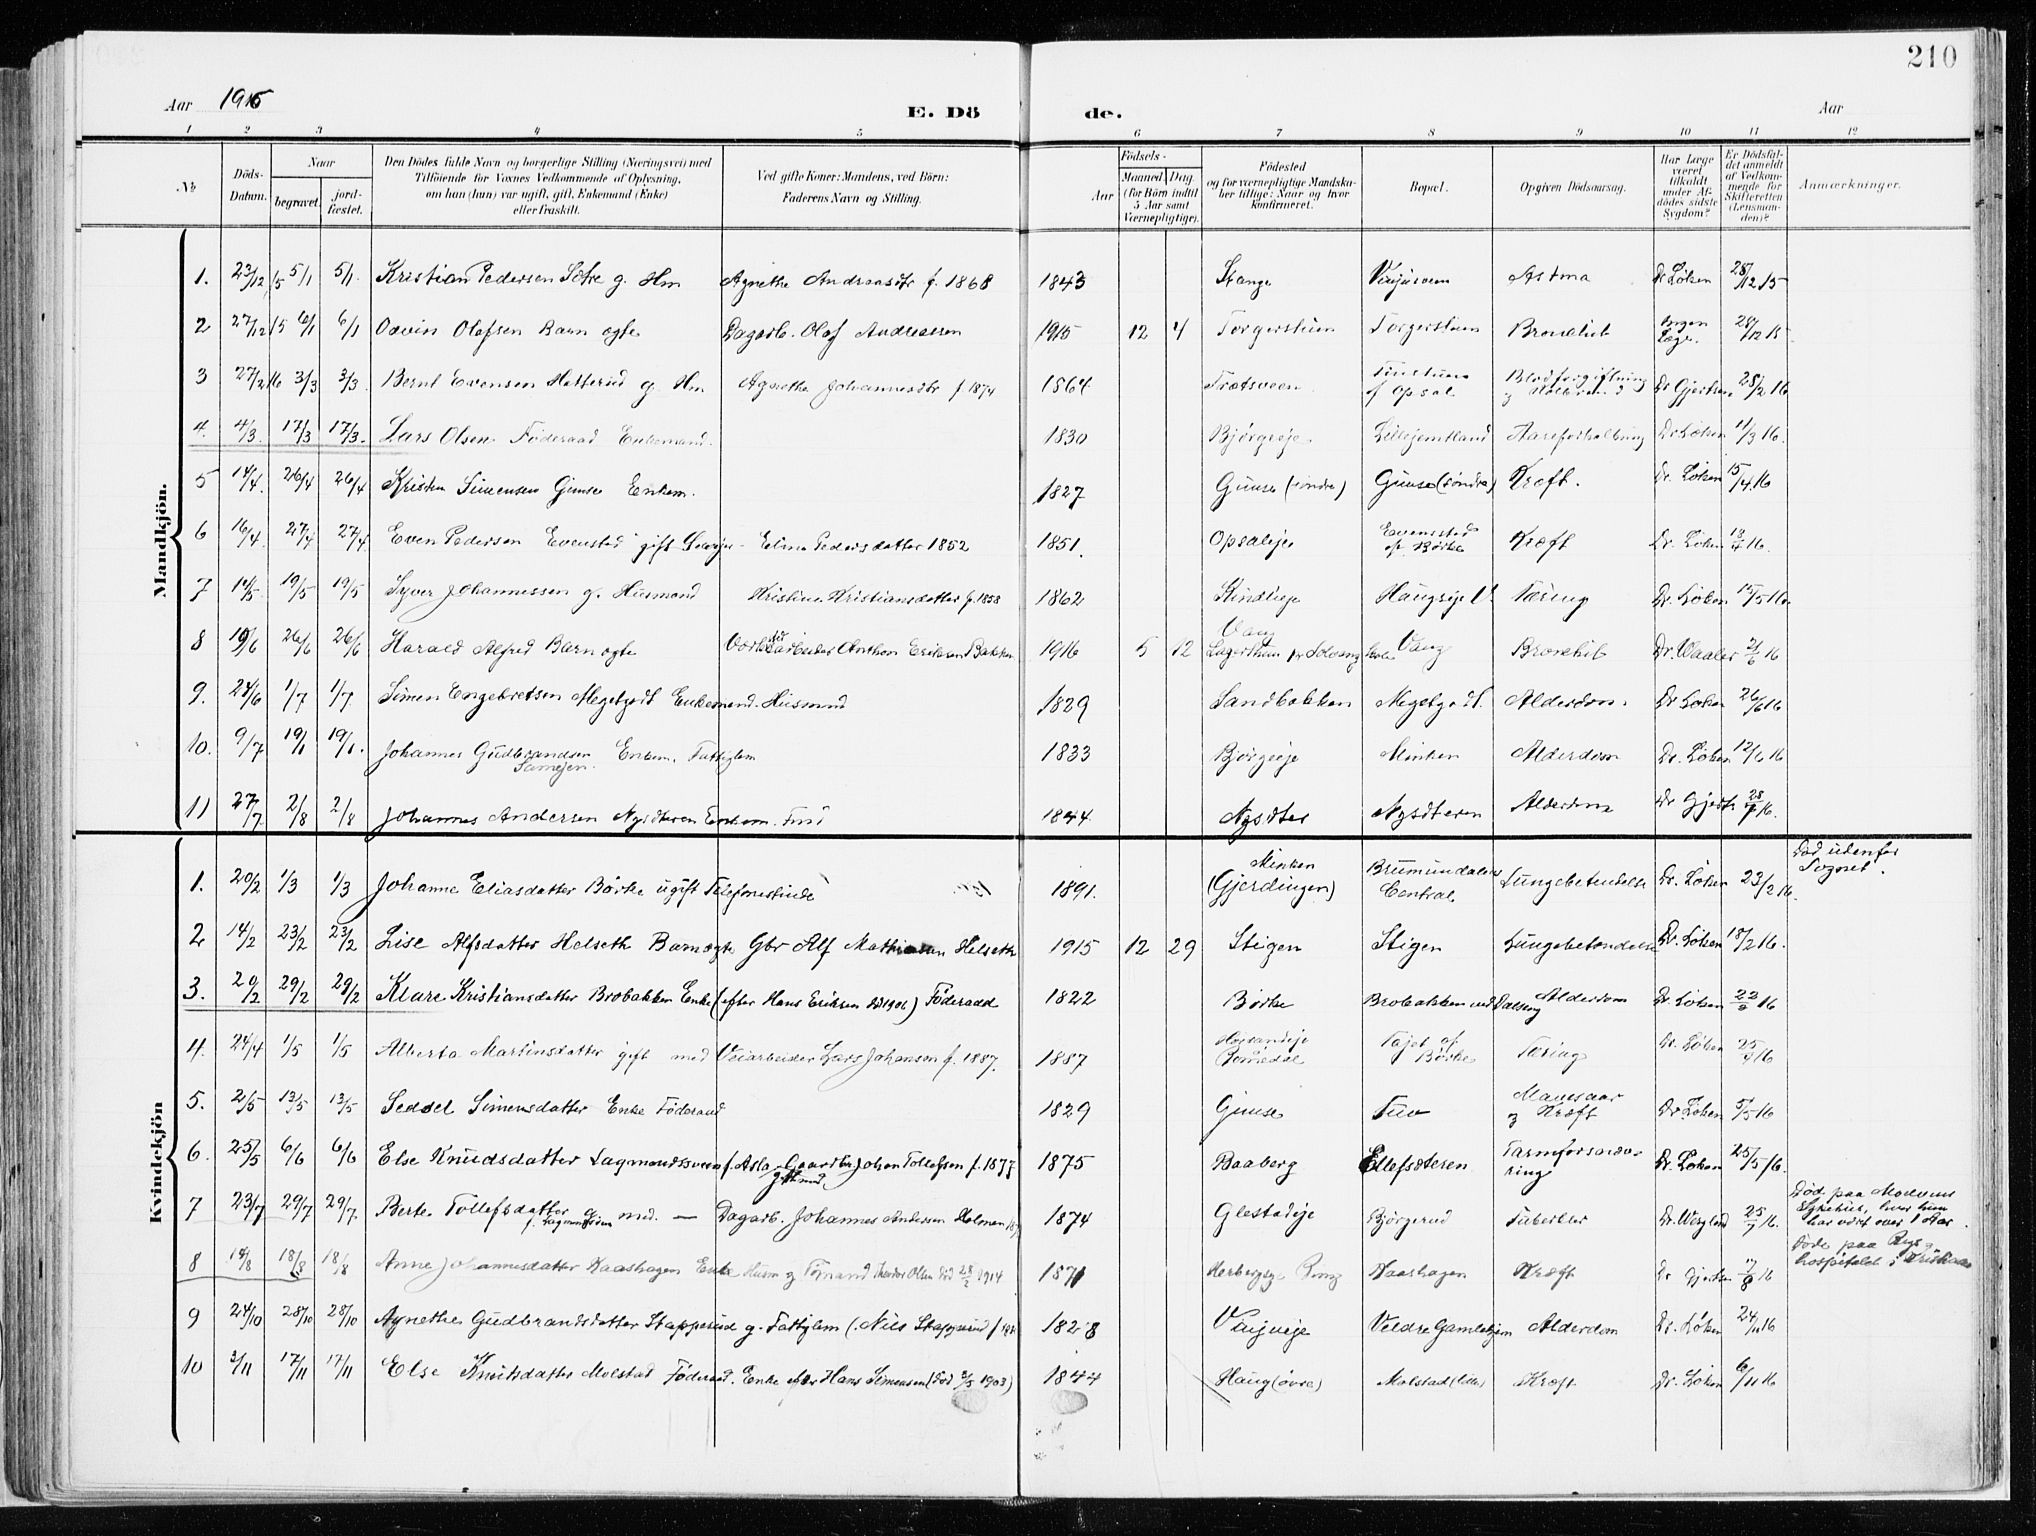 210
Aar 1916
E. Dö
de.
Aar
1 2 3 4 5 6 7 8 9 10 11 12
No
Döds-Datum.
Naar
begravet.
jord-fæstet.
Den Dödes fulde Navn og borgerlige Stilling (Næringsvei) med
Tilföiende for Voxnes Vedkommende af Oplysning,
om han (hun) var ugift, gift, Enkemand (Enke)
eller fraskilt.
Ved gifte Koner: Mandens, ved Börn:
Faderens Navn og Stilling.
Födsels-
Aar
Maaned, Dag.
(for Börn indtil
5 Aar samt
Værnepligtige).
Födested
og for værnepligtige Mandska-
ber tillige: Naar og hvor
konfirmeret.
Bopæl.
Opgiven Dödsaarsag.
Har Læge
været
tilkaldt
under Af-
dödes sidste
Sygdom?
Er Dödsfal-
det anmeldt
af Vedkom-
mende for
Skifteretten
(Lensman-
den)?
Anmærkninger.
Mandkjön.
1. 23/12 15 5/1 5/1. Kristian Pedersen Sætre g. Hm Agnethe Andreasdtr f. 1868 1843 Stange Astma Dr Løken 28/12 15
2 27/12 15 6/1 6/1 Odvin Olafsen Barn ægte Dagarb. Olaf Andreassen 1915 12 4 Torgerstuen Torgerstuen Bronchit Ingen Læge. 28/12 15.
3 27/2 16 3/3 3/3. Bernt Evensen Hatterud g. Hm Agnethe Johannesdtr f 1874 1864 Trætsveen af Opsal Blodforgiftning Dr Gjertsen 28/2 16
4. 4/3. 17/3 17/3. Lars Olsen Føderaad Enkemand. 1830 Bjørgeeje Lillejemtland Aareforkalkning Dr Løken 11/3 16.
5 14/4. 26/4 26/4 Kristen Simensen Gimse Enkem. 1827 Gimse (søndre) Gimse (søndre) Kræft. Dr. Løken 15/4 16
6 16/4. 27/4 27/4. Even Pedersen Evenstad gift Elina Pedersdatter 1852 1851. Opsaleje Evensstad af Børke Kræft Dr. Løken 16.
7 14/5. 19/5 19/5 Syver Johannessen g. Husmand Kristine Kristiansdatter f. 1858 1862 Haugseje Tæring Dr. Løken 15/5 16.
8 19/6 26/6 26/6 Harald Alfred Barn ægte Anthon Eriksen Bakken 1916 5 12 Vang Solvang Skole Vang Bronchit Dr. Waaler 21/6 16
9. 24/6 1/7 1/7. Simen Engebretsen Megetgodt Enkemand. Husmand 1829 Sandbakken Megetgodt. Alderdom. Dr Løken 26/6 16
10. 9/7 19/1 19/1. Johannes Gudbrandsen Enkem. Fattiglem 1833 Bjørgeeje Minken Alderdom Dr. Løken 12/6 16
11 27/7. 2/8 2/8 Johannes Andersen Nysæteren Enkem. 1844 Nysæter Nysæteren Alderdom Dr Gjerts. 28/7 16.
Kvindekjön
1. 20/2 1/3 1/3 Johanne Eliasdatter Børke ugift Telefonistinde 1891. Minken (Gjerdingen) Brumunddalens Central Lungebetændelse Dr. Løken 23/2 16. Død udenfor Sognet.
2 14/2 23/2 23/2 Lise Alfsdatter Helseth Barn ægte Gbr Alf Mathiesen Helseth 1915 12 29 Stigen Stigen Lungebetændelse Dr. Løken 18/2 16.
3. 20/2 29/2 29/2 Klare Kristiansdatter Brobakken Enke (efter Hans Eriksen død 1901) Føderaad 1822 Børke Brobakken ved Dalseng Alderdom Dr. Løken 22/2 16
4. 24/4 1/5 1/5 Alberta Martinsdatter gift med Veiarbeider Lars Johansen f. 1887. 1887 Romedal Tajet af Børke Tæring Dr. Løken 25/4 16
5. 2/5 13/5 13/5 Sedsel Simensdatter Enke Føderaad 1829 Gimse Tuv Mavesaar og Kræft Dr Løken 5/5 16
6. 25/5 6/6 6/6 Else Knudsdatter Lagmandssveen f. Asla gift med Gaardbr. Johan Tollefsen f. 1877 1875 Faaberg Ellefsæteren Tarmforsnæv- ring Dr. Løken 25/5 16.
7 23/7 29/7 29/7. Berte Tollefsdatter g. med. — Dagarb. Johannes Andersen Holmen 1874 Glestadeje Bjørgerud Tuberkler Dr. Wergland 25/7 16. Død paa Moelvens Sykehus, hvor hun har været over 1 Aar.
8 14/8 18/8 18/8 Anne Johannesdatter Kaashagen Enke Husm g Tømmand Theodor Olsen død 28/2 1914 1871 Kaashagen Kræft Dr Gjertsen 17/8 16 Døde paa Rigs- hospitalet i Kristiania
9 24/10 28/10 28/10 Agnethe Gudbrandsdatter Stapperud g. Fattiglem (Nils Stapperud f 1828 Vinjveje Veldre Gamlehjem Alderdom Dr. Løken 24/11 16
10 3/11 17/11 17/11 Else Knutsdatter Molstad Føderaad. Enke efter Hans Simensen (død 3/5 1903) 1844 Haug (øvre) Molstad (lille) Kræft Dr. Løken 6/11 16